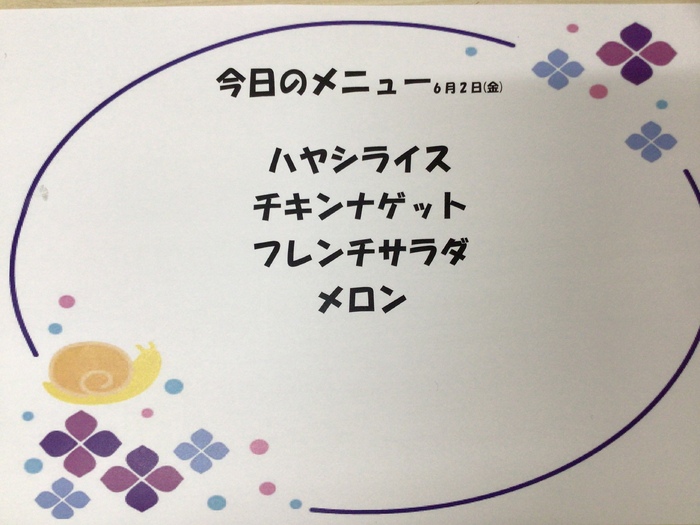 今日のメニュー6月2日(金)
ハヤシライス
チキンナゲット
フレンチサラダ
メロン